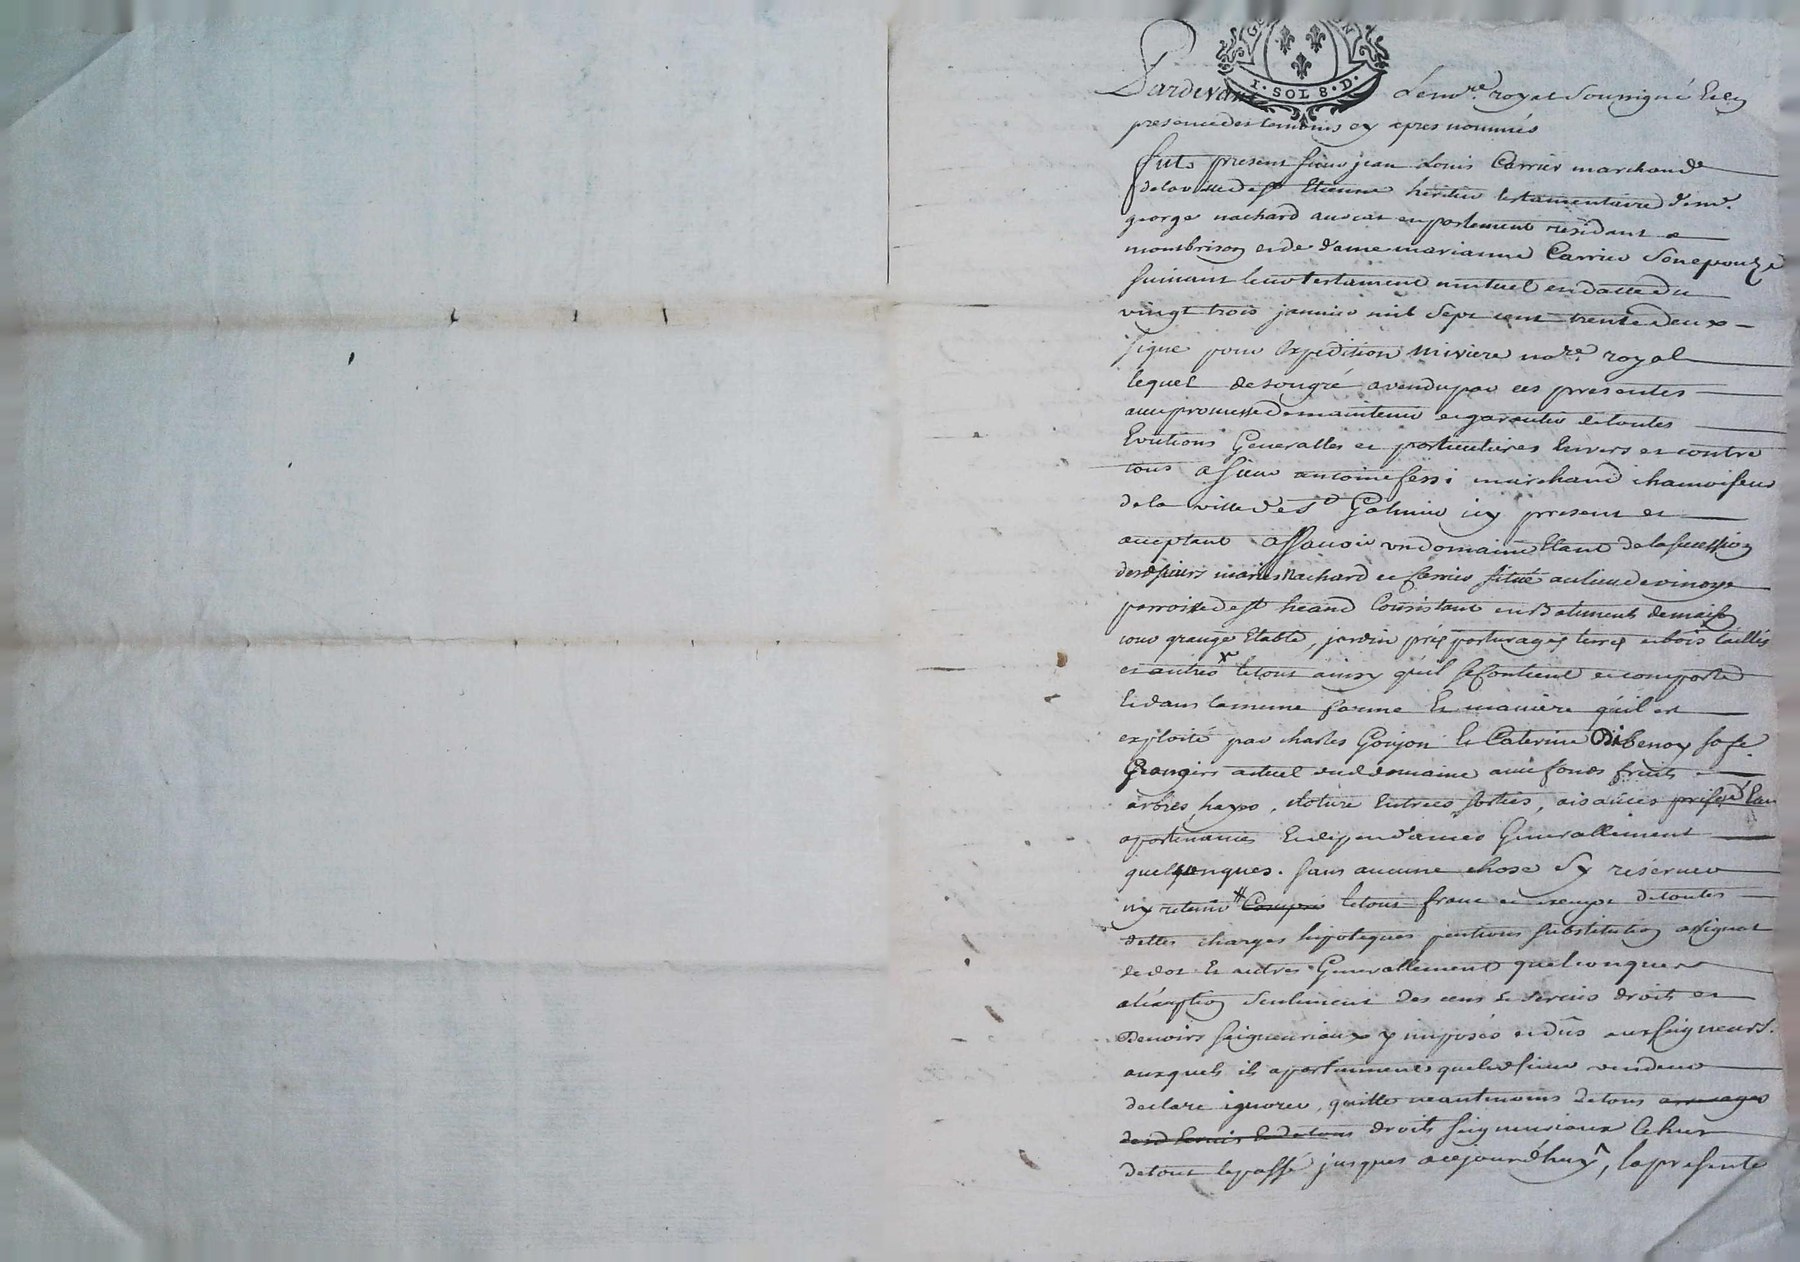 I · SOL 8 · D ·
Pardevant Le no.re royal Soussigné Et en
presence des temoins cy apres nommés
fut present sieur jean Louis Carrier marchand
de la ville de st Etienne heritier testamentaire de mr.
george nachard avocat en parlement residant a
montbrison et de dame marianne Carrier Son epouze
suivant leur testament mutuel en datte du
vingt trois janvier mil Sept cent trente deux
signé pour Expedition miviere no.re royal
lequel de son gré a vendu par ces presentes
avec promesse de maintenir et garantir de toutes
Evictions Generalles et particulieres Envers et contre
tous a sieur antoine fessi marchand chamoiseur
de la ville de St Galmier icy present et
acceptant assavoir un domaine Etant de la sucession
desd sieurs mariés Nachard et Carrier situé au lieu de vinoys
parroisse de st heand Consistant en Batiments de maison
cour grange Etable, jardin préz pasturages terres et bois taillis
et autres x le tout ainsy qu'il se Contient et comporte
Et dans la meme forme Et maniere qu'il est
exploité par charles Goujon Et Caterine Dibenoy sa fe.
Grangers actuel dud domaine avec fonds fruits
arbres, hayes, cloture Entrees sorties, aisances prise d'Eau
apartenances Et dependances Generallement
quelqonques. sans aucune chose s'y reserver
ny retenir # Compris le tout franc et exempt de toutes
dettes charges hipoteques pentions substitution assignat
de dot Et autres Generallement quelconques
a l'exception Seulement des cens Et servis droits et
Devoirs seigneuriaux y imposés et dûs aux seigneurs.
auxquels ils apartiennent que led sieur vendeur
declare ignorer, quitte neantmoins de tous arrerages
desd servis Et de tous droits seigneuriaux Echus
de tout le passé jusques a ce jourd'huy ^, la presente